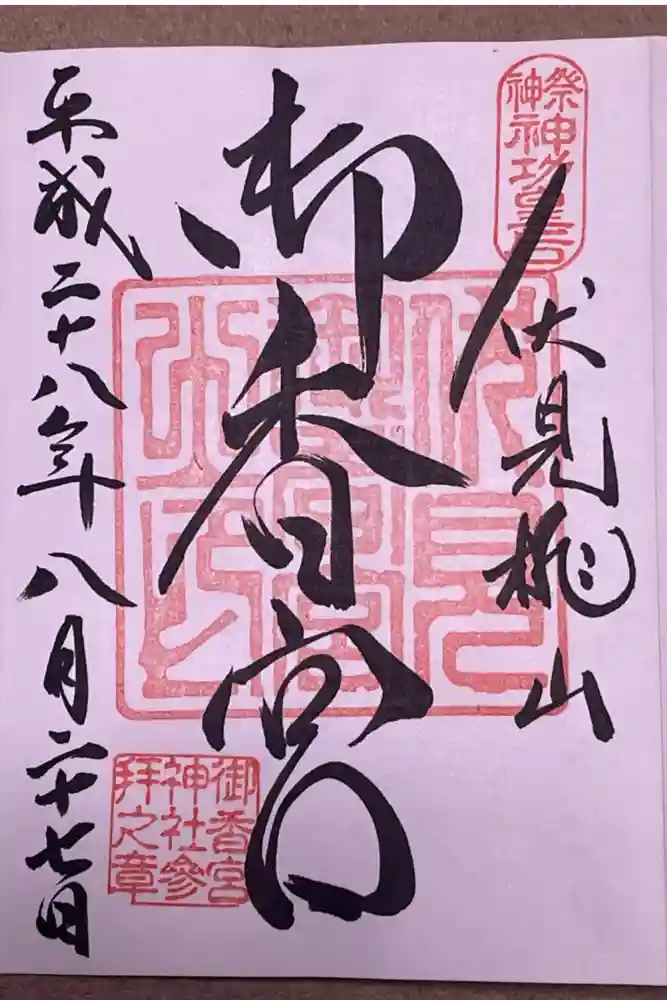 祭神
神功皇后
伏見桃山
御香宮
平成二十八年八月二十七日
御香宮
神社參
拜之章